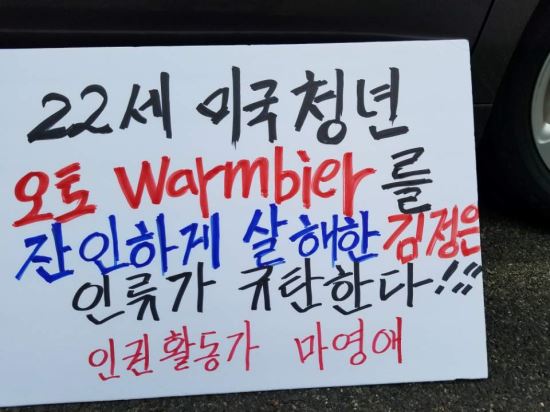 22세 미국청년
오토 Warmbier를
잔인하게 살해한 김정은
인류가 규탄한다!!!
인권활동가 마영애